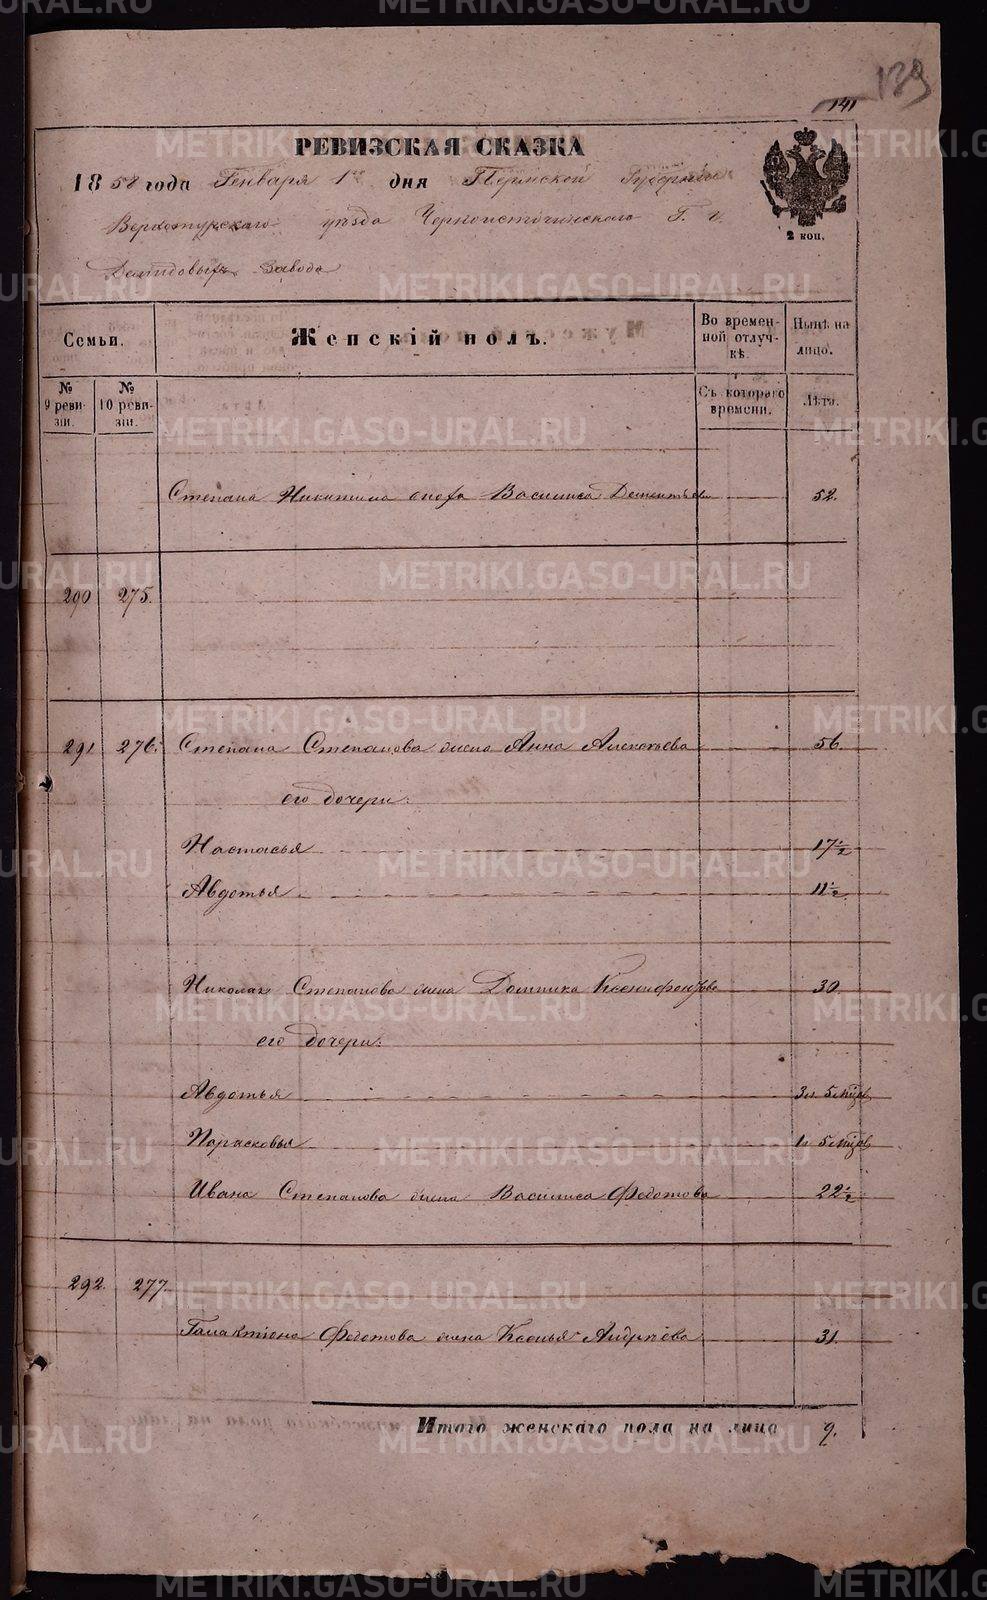 139
141
РЕВИЗСКАЯ СКАЗКА
1858 года Генваря 1го дня Пермской Губернiи
Верхотурскаго уѣзда Черноисточинскаго Г. г.
Демидовыхъ завода
2 коп.
Семьи.
Женскiй полъ.
Во времен-
ной отлуч-
кѣ.
Нынѣ на
лицо.
№
9 реви-
зiи.
№
10 реви-
зiи.
Съ котораго
времени.
Лѣта.
Степана Никитина сноха Василиса Дементьева 52.
290 275.
291 276. Степана Степанова жена Анна Алексѣева 56.
его дочери:
Настасья 17½
Авдотья 11½
Николая Степанова жена Домника Ксенофонтова 30.
его дочери:
Авдотья 3 г. 5 мѣсяц
Парасковья 1 г. 5 мѣсяц
Ивана Степанова жена Василиса Федотова 22½
292. 277.
Галактiона Федотова жена Ксенья Андрѣева 31.
Итого женскаго пола на лицо 9.
METRIKI.GASO-URAL.RU